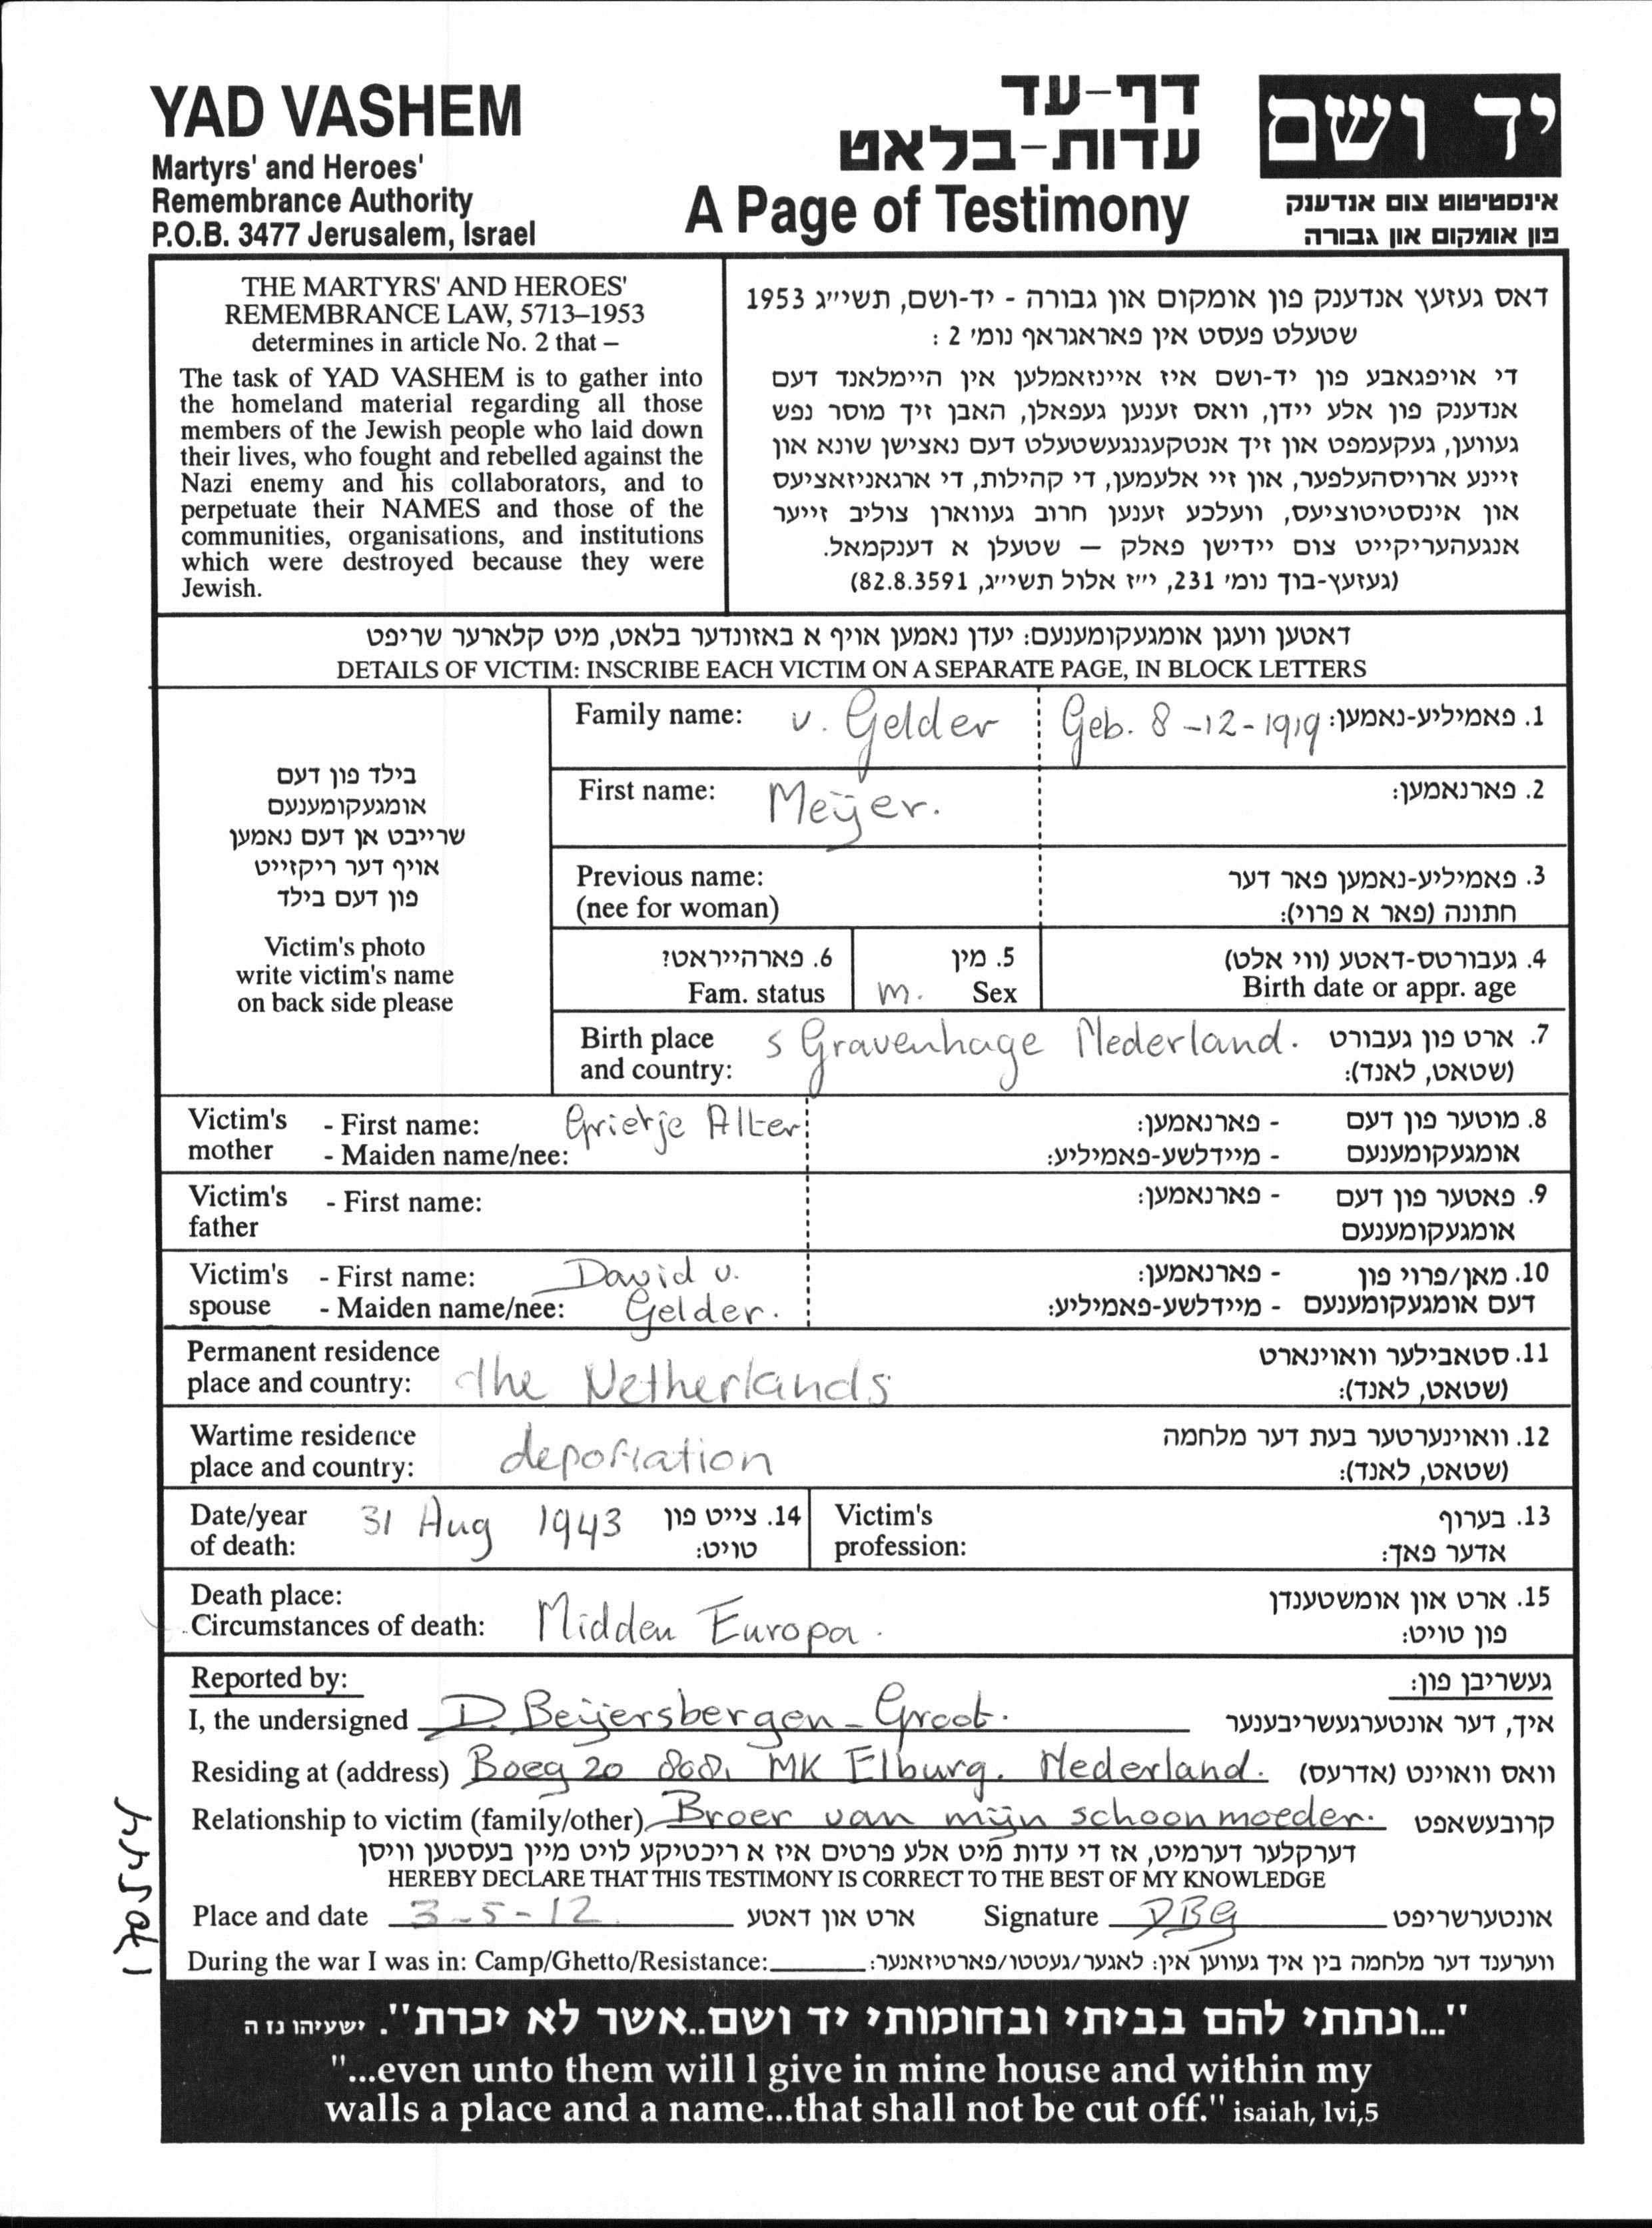 YAD VASHEM
Martyrs' and Heroes'
Remembrance Authority
P.O.B. 3477 Jerusalem, Israel
דף-עד
עדות-בלאט
A Page of Testimony
יד ושם
אינסטיטוט צום אנדענק
פון אומקום און גבורה
THE MARTYRS' AND HEROES'
REMEMBRANCE LAW, 5713–1953
determines in article No. 2 that –
The task of YAD VASHEM is to gather into
the homeland material regarding all those
members of the Jewish people who laid down
their lives, who fought and rebelled against the
Nazi enemy and his collaborators, and to
perpetuate their NAMES and those of the
communities, organisations, and institutions
which were destroyed because they were
Jewish.
דאס געזעץ אנדענק פון אומקום און גבורה - יד-ושם, תשי״ג 1953
שטעלט פעסט אין פאראגראף נומ׳ 2 :
די אויפגאבע פון יד-ושם איז איינזאמלען אין היימלאנד דעם
אנדענק פון אלע יידן, וואס זענען געפאלן, האבן זיך מוסר נפש
געווען, געקעמפט און זיך אנטקעגנגעשטעלט דעם נאצישן שונא און
זיינע ארויסהעלפער, און זיי אלעמען, די קהילות, די ארגאניזאציעס
און אינסטיטוציעס, וועלכע זענען חרוב געווארן צוליב זייער
אנגעהעריקייט צום יידישן פאלק — שטעלן א דענקמאל.
(געזעץ-בוך נומ׳ 231, י״ז אלול תשי״ג, 82.8.3591)
דאטען וועגן אומגעקומענעם: יעדן נאמען אויף א באזונדער בלאט, מיט קלארער שריפט
DETAILS OF VICTIM: INSCRIBE EACH VICTIM ON A SEPARATE PAGE, IN BLOCK LETTERS
בילד פון דעם
אומגעקומענעם
שרייבט אן דעם נאמען
אויף דער ריקזייט
פון דעם בילד
Victim's photo
write victim's name
on back side please
Family name: v. Gelder Geb. 8-12-1919 1. פאמיליע-נאמען:
First name: Meÿer. 2. פארנאמען:
Previous name: 3. פאמיליע-נאמען פאר דער
(nee for woman) חתונה (פאר א פרוי):
6. פארהייראט? 5. מין 4. געבורטס-דאטע (ווי אלט)
Fam. status m. Sex Birth date or appr. age
Birth place s Gravenhage Nederland. 7. ארט פון געבורט
and country: (שטאט, לאנד):
Victim's - First name: Grietje Alter - פארנאמען: 8. מוטער פון דעם
mother - Maiden name/nee: - מיידלשע-פאמיליע: אומגעקומענעם
Victim's - First name: - פארנאמען: 9. פאטער פון דעם
father אומגעקומענעם
Victim's - First name: David v. - פארנאמען: 10. מאן/פרוי פון
spouse - Maiden name/nee: Gelder. - מיידלשע-פאמיליע: דעם אומגעקומענעם
Permanent residence 11. סטאבילער וואוינארט
place and country: the Netherlands (שטאט, לאנד):
Wartime residence 12. וואוינערטער בעת דער מלחמה
place and country: deportation (שטאט, לאנד):
Date/year 31 Aug 1943 14. צייט פון Victim's 13. בערוף
of death: טויט: profession: אדער פאך:
Death place: 15. ארט און אומשטענדן
Circumstances of death: Midden Europa. פון טויט:
Reported by: געשריבן פון:
I, the undersigned D. Beijersbergen - Groot. איך, דער אונטערגעשריבענער
Residing at (address) Boeg 20 8081 MK Elburg. Nederland. וואס וואוינט (אדרעס)
Relationship to victim (family/other) Broer van mijn schoonmoeder. קרובעשאפט
דערקלער דערמיט, אז די עדות מיט אלע פרטים איז א ריכטיקע לויט מיין בעסטען וויסן
HEREBY DECLARE THAT THIS TESTIMONY IS CORRECT TO THE BEST OF MY KNOWLEDGE
Place and date 3-5-12 ארט און דאטע Signature DBG אונטערשריפט
During the war I was in: Camp/Ghetto/Resistance: ווערענד דער מלחמה בין איך געווען אין: לאגער/געטטו/פארטיזאנער:
"...ונתתי להם בביתי ובחומותי יד ושם..אשר לא יכרת". ישעיהו נז ה
"...even unto them will I give in mine house and within my
walls a place and a name...that shall not be cut off." isaiah, lvi,5